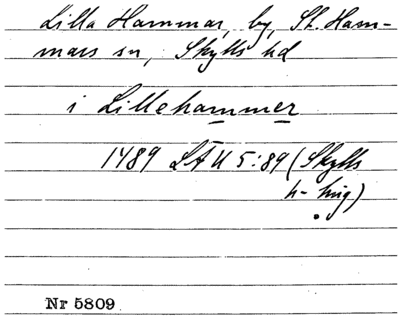 Lilla Hammar, by, St. Ham-
mars sn, Skytts hd
i Lillehammer
1489 LÄU 5:89 (Skytts
h-ting)
Nr 5809